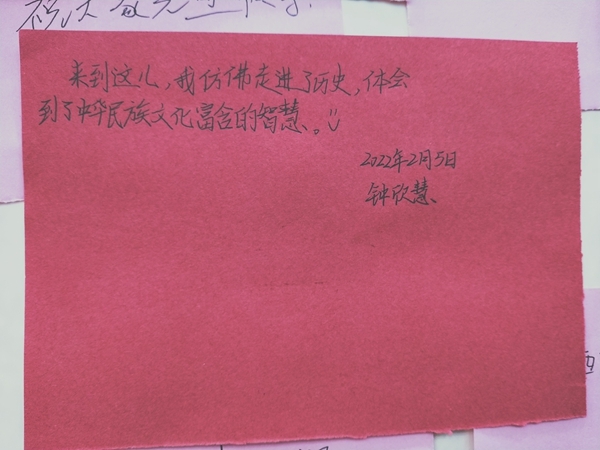 来到这儿，我仿佛走进了历史，体会
到了中华民族文化富含的智慧。
2022年2月5日
钟欣慧